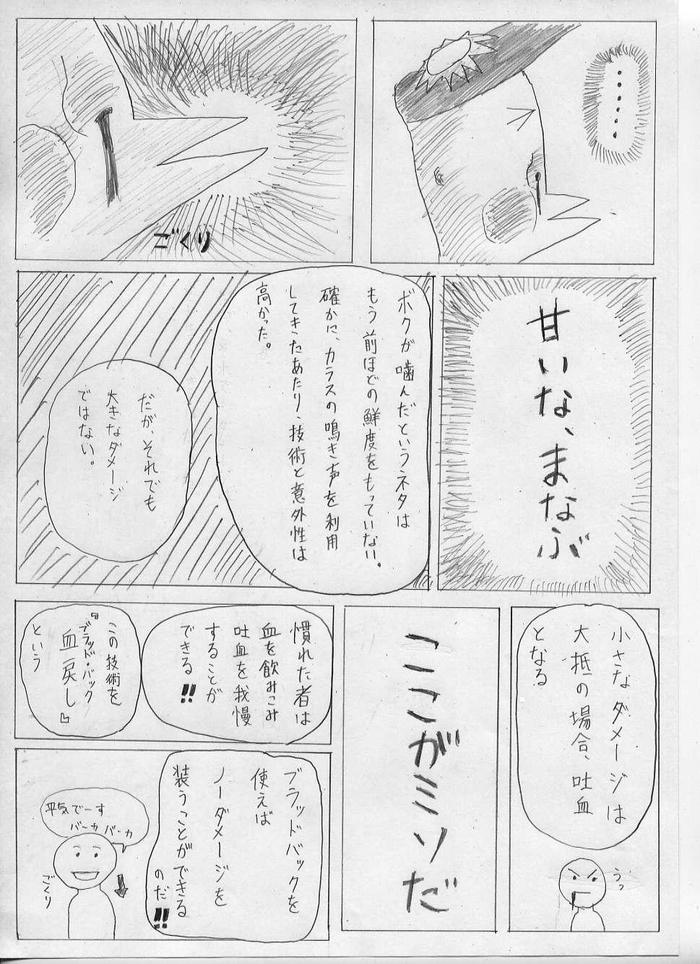 ・・・・・・
ごくり
甘いな、まなぶ
ボクが噛んだというネタは
もう前ほどの鮮度をもっていない。
確かに、カラスの鳴き声を利用
してきたあたり、技術と意外性は
高かった。
だが、それでも
大きなダメージ
ではない。
小さなダメージは
大抵の場合、吐血
となる
うっ
ここがミソだ
慣れた者は
血を飲みこみ
吐血を我慢
することが
できる!!
この技術を
『ブラッド・バック
血戻し』
という
ブラッドバックを
使えば
ノーダメージを
装うことができる
のだ!!
平気でーす
バーカ バーカ
ごくり